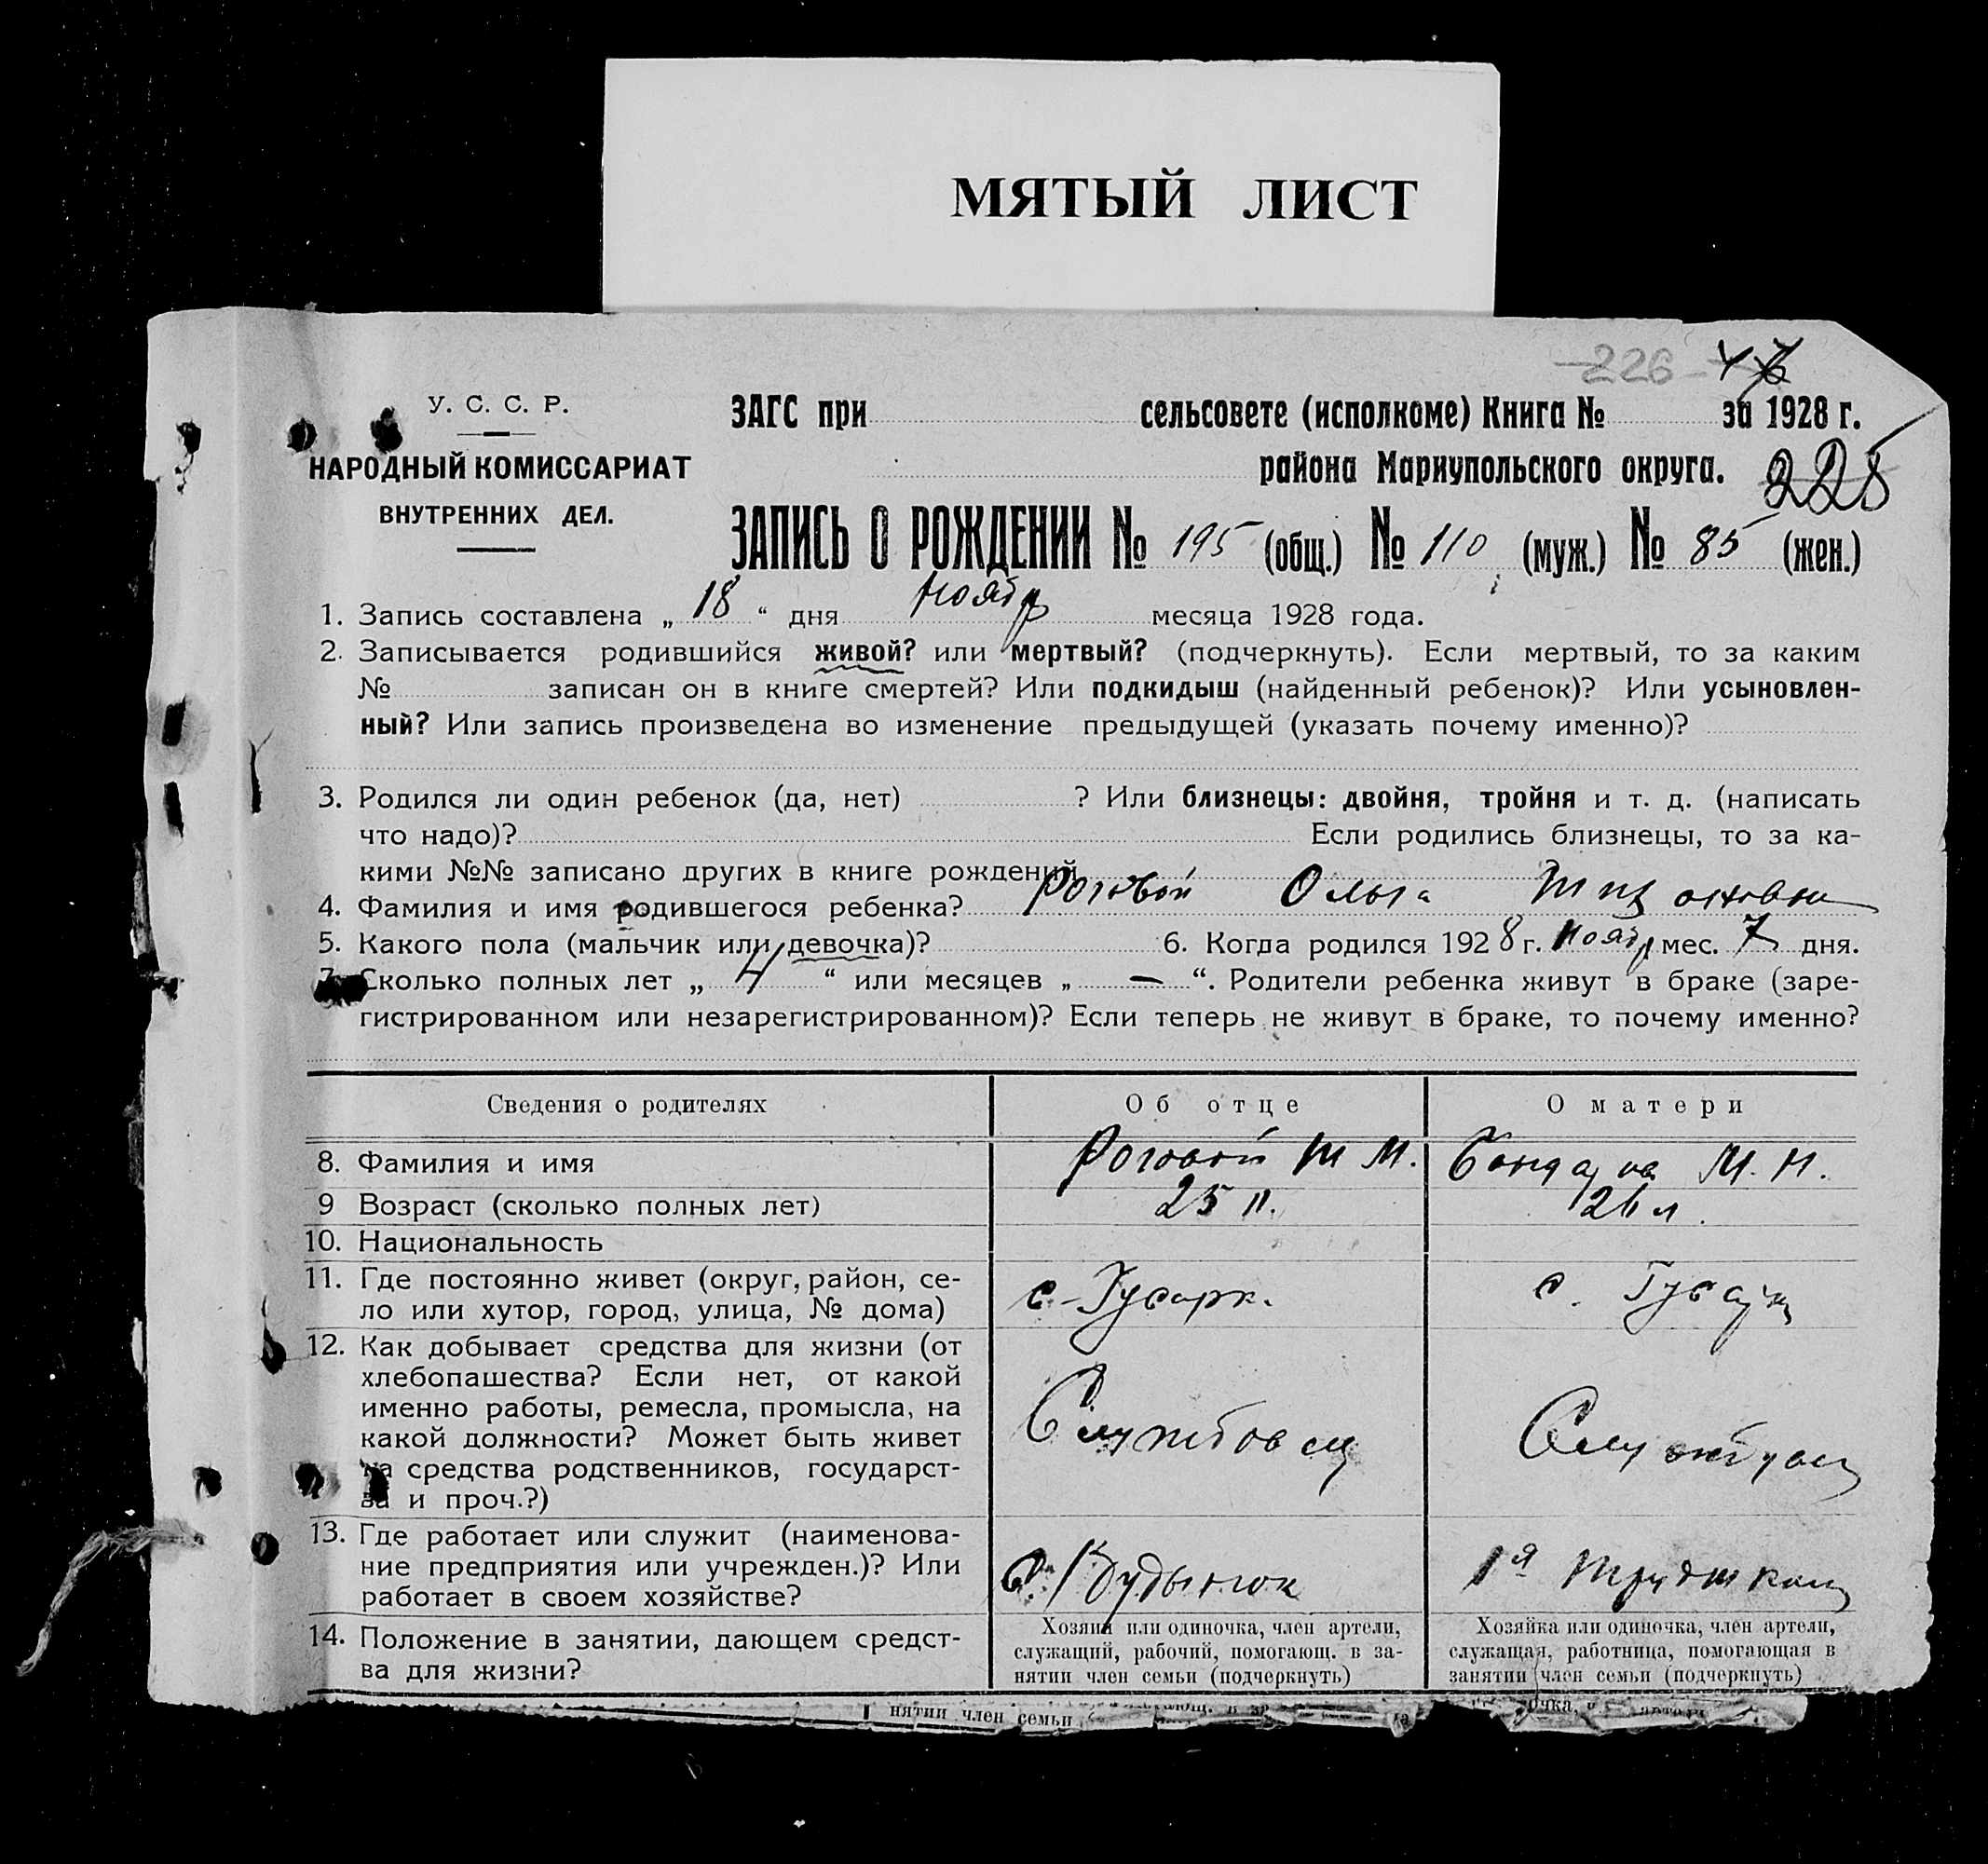 МЯТЫЙ ЛИСТ
226
У. С. С. Р.
НАРОДНЫЙ КОМИССАРИАТ
ВНУТРЕННИХ ДЕЛ.
ЗАГС при сельсовете (исполкоме) Книга № за 1928 г.
района Мариупольского округа.
225
ЗАПИСЬ О РОЖДЕНИИ № 195 (общ.) № 110 (муж.) № 85 (жен.)
1. Запись составлена „ 18 “ дня ноябр месяца 1928 года.
2. Записывается родившийся живой? или мертвый? (подчеркнуть). Если мертвый, то за каким
№ записан он в книге смертей? Или подкидыш (найденный ребенок)? Или усыновлен-
ный? Или запись произведена во изменение предыдущей (указать почему именно)?
3. Родился ли один ребенок (да, нет) ? Или близнецы: двойня, тройня и т. д. (написать
что надо)? Если родились близнецы, то за ка-
кими №№ записано других в книге рождений
4. Фамилия и имя родившегося ребенка? Роговой Ольга
5. Какого пола (мальчик или девочка)? 6. Когда родился 1928 г. ноябр мес. 7 дня.
7. Сколько полных лет „ 4 “ или месяцев „ — “. Родители ребенка живут в браке (заре-
гистрированном или незарегистрированном)? Если теперь не живут в браке, то почему именно?
Сведения о родителях
Об отце
О матери
8. Фамилия и имя
Роговой Т М.
М. Н.
9 Возраст (сколько полных лет)
25 л.
26 л.
10. Национальность
11. Где постоянно живет (округ, район, се-
ло или хутор, город, улица, № дома)
с. Гусарк.
с.
12. Как добывает средства для жизни (от
хлебопашества? Если нет, от какой
именно работы, ремесла, промысла, на
какой должности? Может быть живет
на средства родственников, государст-
ва и проч.?)
13. Где работает или служит (наименова-
ние предприятия или учрежден.)? Или
работает в своем хозяйстве?
1я
14. Положение в занятии, дающем средст-
ва для жизни?
Хозяин или одиночка, член артели,
служащий, рабочий, помогающ. в за-
нятии член семьи (подчеркнуть)
Хозяйка или одиночка, член артели,
служащая, работница, помогающая в
занятии член семьи (подчеркнуть)
нятии член семьи